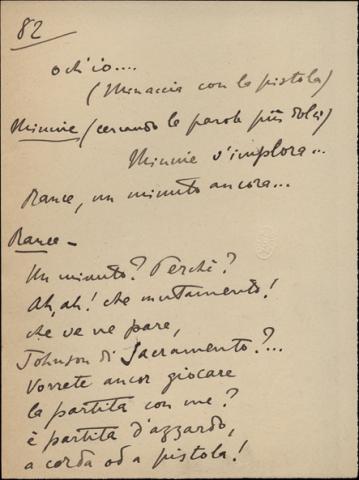 82
od io....
(Minaccia con la pistola)
Minnie (cercando le parole più dolci)
Minnie v'implora...
Rance, un minuto ancora...
Rance -
Un minuto? Perchè?
Ah, ah! che mutamento!
che ve ne pare,
Johnson di Sacramento?...
Vorrete ancor giocare
la partita con me?
è partita d'azzardo,
a corda od a pistola!